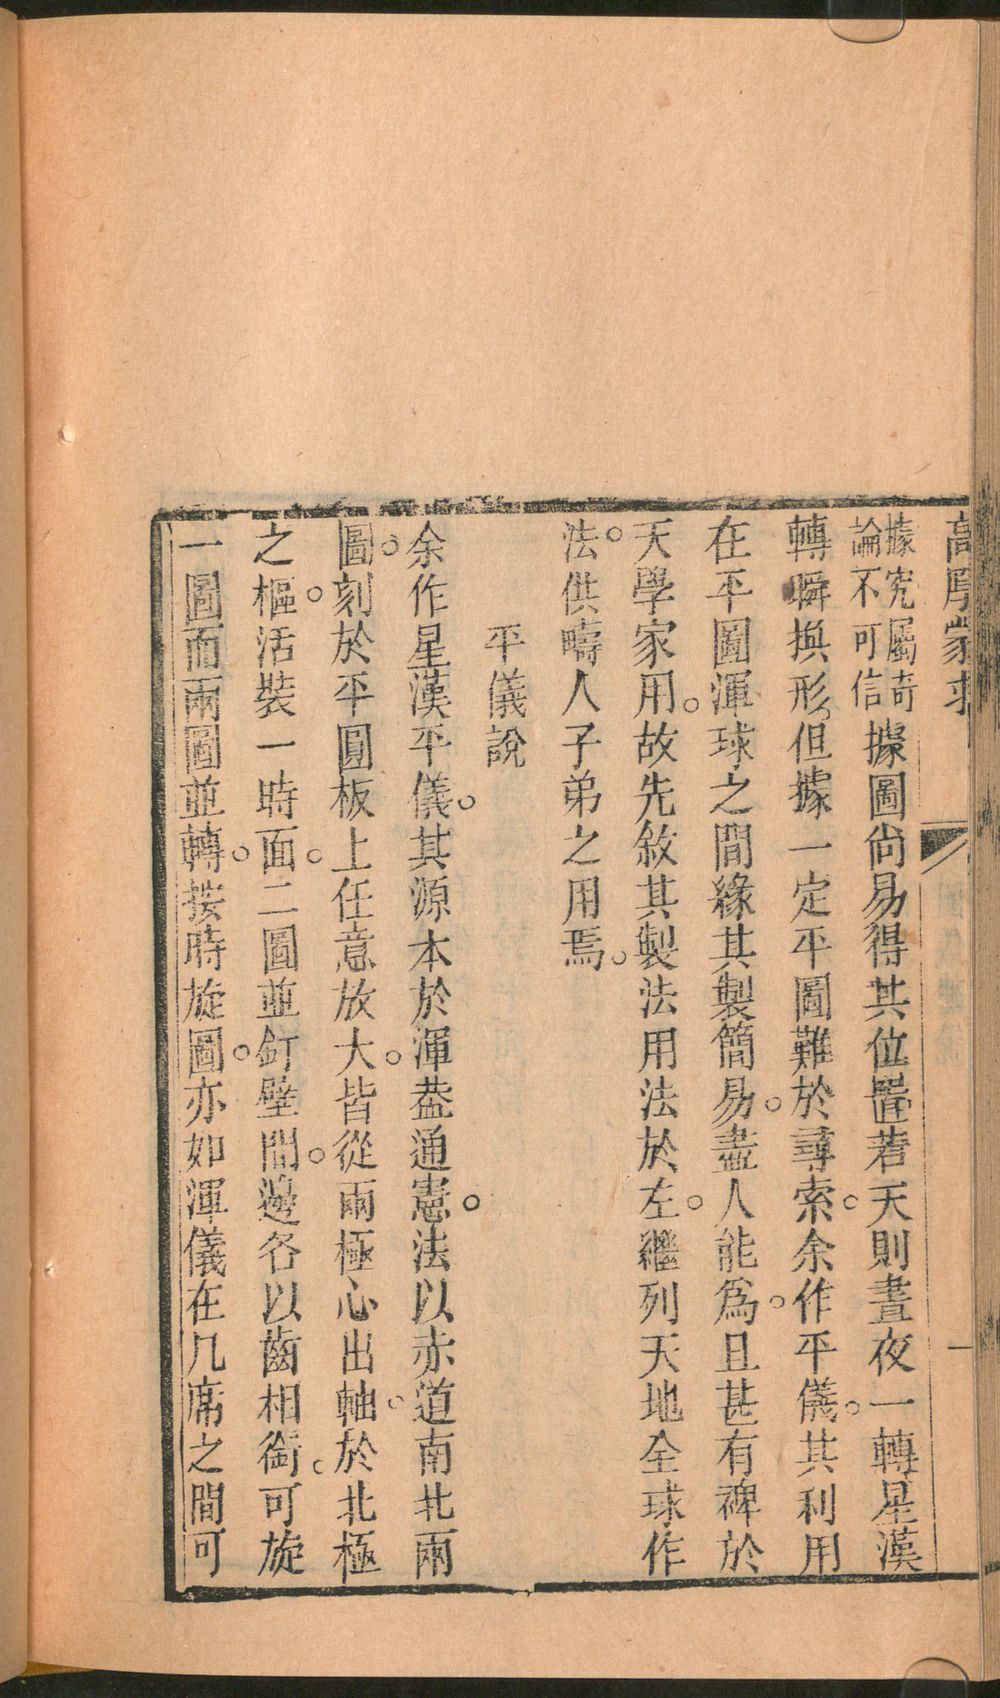 高厚蒙求
據究屬奇
論不可信
據圖尚易得其位置若天則晝夜一轉星漢
轉瞬換形但據一定平圖難於尋索。余作平儀。其利用
在平圖渾球之間緣其製簡易。盡人能為。且甚有裨於
天學家用。故先敘其製法用法於左。繼列天地全球作
法。供疇人子弟之用焉。
平儀說
余作星漢平儀。其源本於渾葢通憲。法以赤道南北兩
圖。刻於平圓板上任意放大。皆從兩極心出軸。於北極
之樞。活裝一時面。二圖並釘壁間。邊各以齒相銜。可旋
一圖而兩圖並轉。按時旋圖。亦如渾儀在几席之間可
一